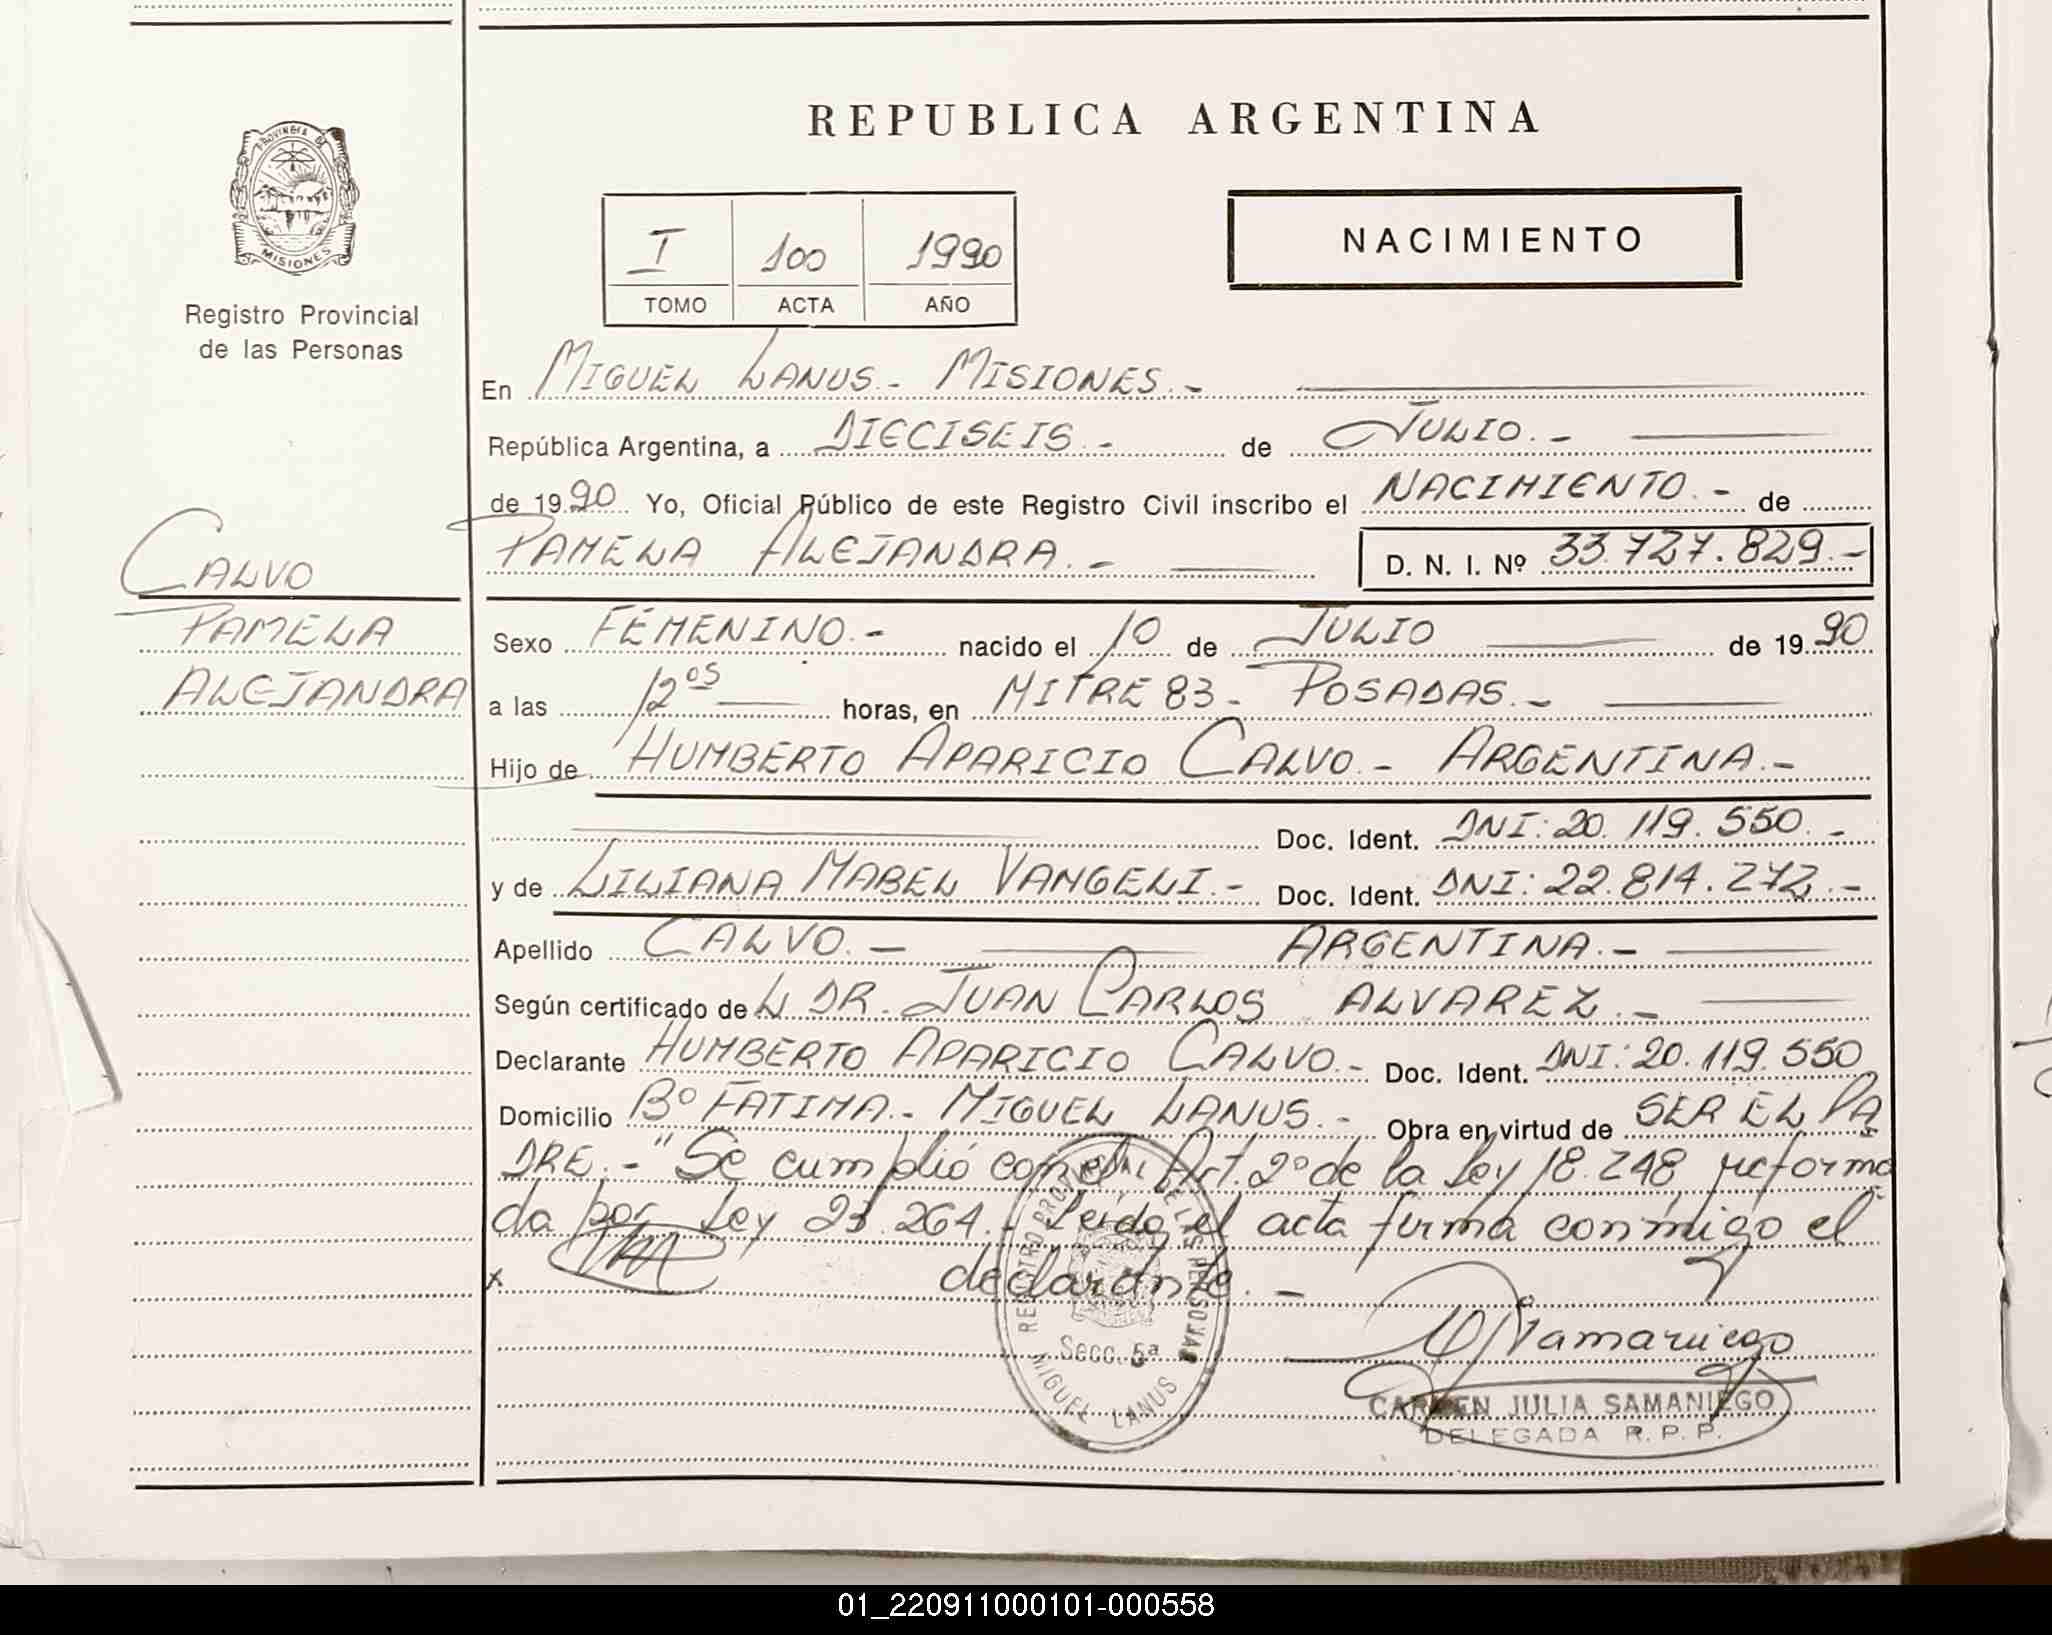 REPUBLICA ARGENTINA
PROVINCIA DE
MISIONES
Registro Provincial
de las Personas
I 100 1990
TOMO ACTA AÑO
NACIMIENTO
En MIGUEL LANUS.- MISIONES.-
República Argentina, a DIECISEIS.- de JULIO.-
de 1990 Yo, Oficial Público de este Registro Civil inscribo el NACIMIENTO.- de
PAMELA ALEJANDRA.- D. N. I. Nº 33.727.829.-
CALVO
PAMELA
ALEJANDRA
Sexo FEMENINO.- nacido el 10 de JULIO de 1990
a las 12 05 horas, en MITRE 83 - POSADAS.-
Hijo de HUMBERTO APARICIO CALVO.- ARGENTINA.-
Doc. Ident. DNI: 20.119.550.-
y de LILIANA MABEL VANGELI.- Doc. Ident. DNI: 22.814.272.-
Apellido CALVO.- ARGENTINA.-
Según certificado de L DR. JUAN CARLOS ALVAREZ.-
Declarante HUMBERTO APARICIO CALVO.- Doc. Ident. DNI: 20.119.550
Domicilio Bº FATIMA.- MIGUEL LANUS.- Obra en virtud de SER EL PA
DRE.- "Se cumplió con el Art. 2º de la Ley 18.248 reforma
da por Ley 23.264.- Leída el acta firma conmigo el
x declarante.-
REGISTRO PROVINCIAL DE LAS PERSONAS
Secc. 5ª
MIGUEL LANUS
CARMEN JULIA SAMANIEGO
DELEGADA R. P. P.
01_220911000101-000558